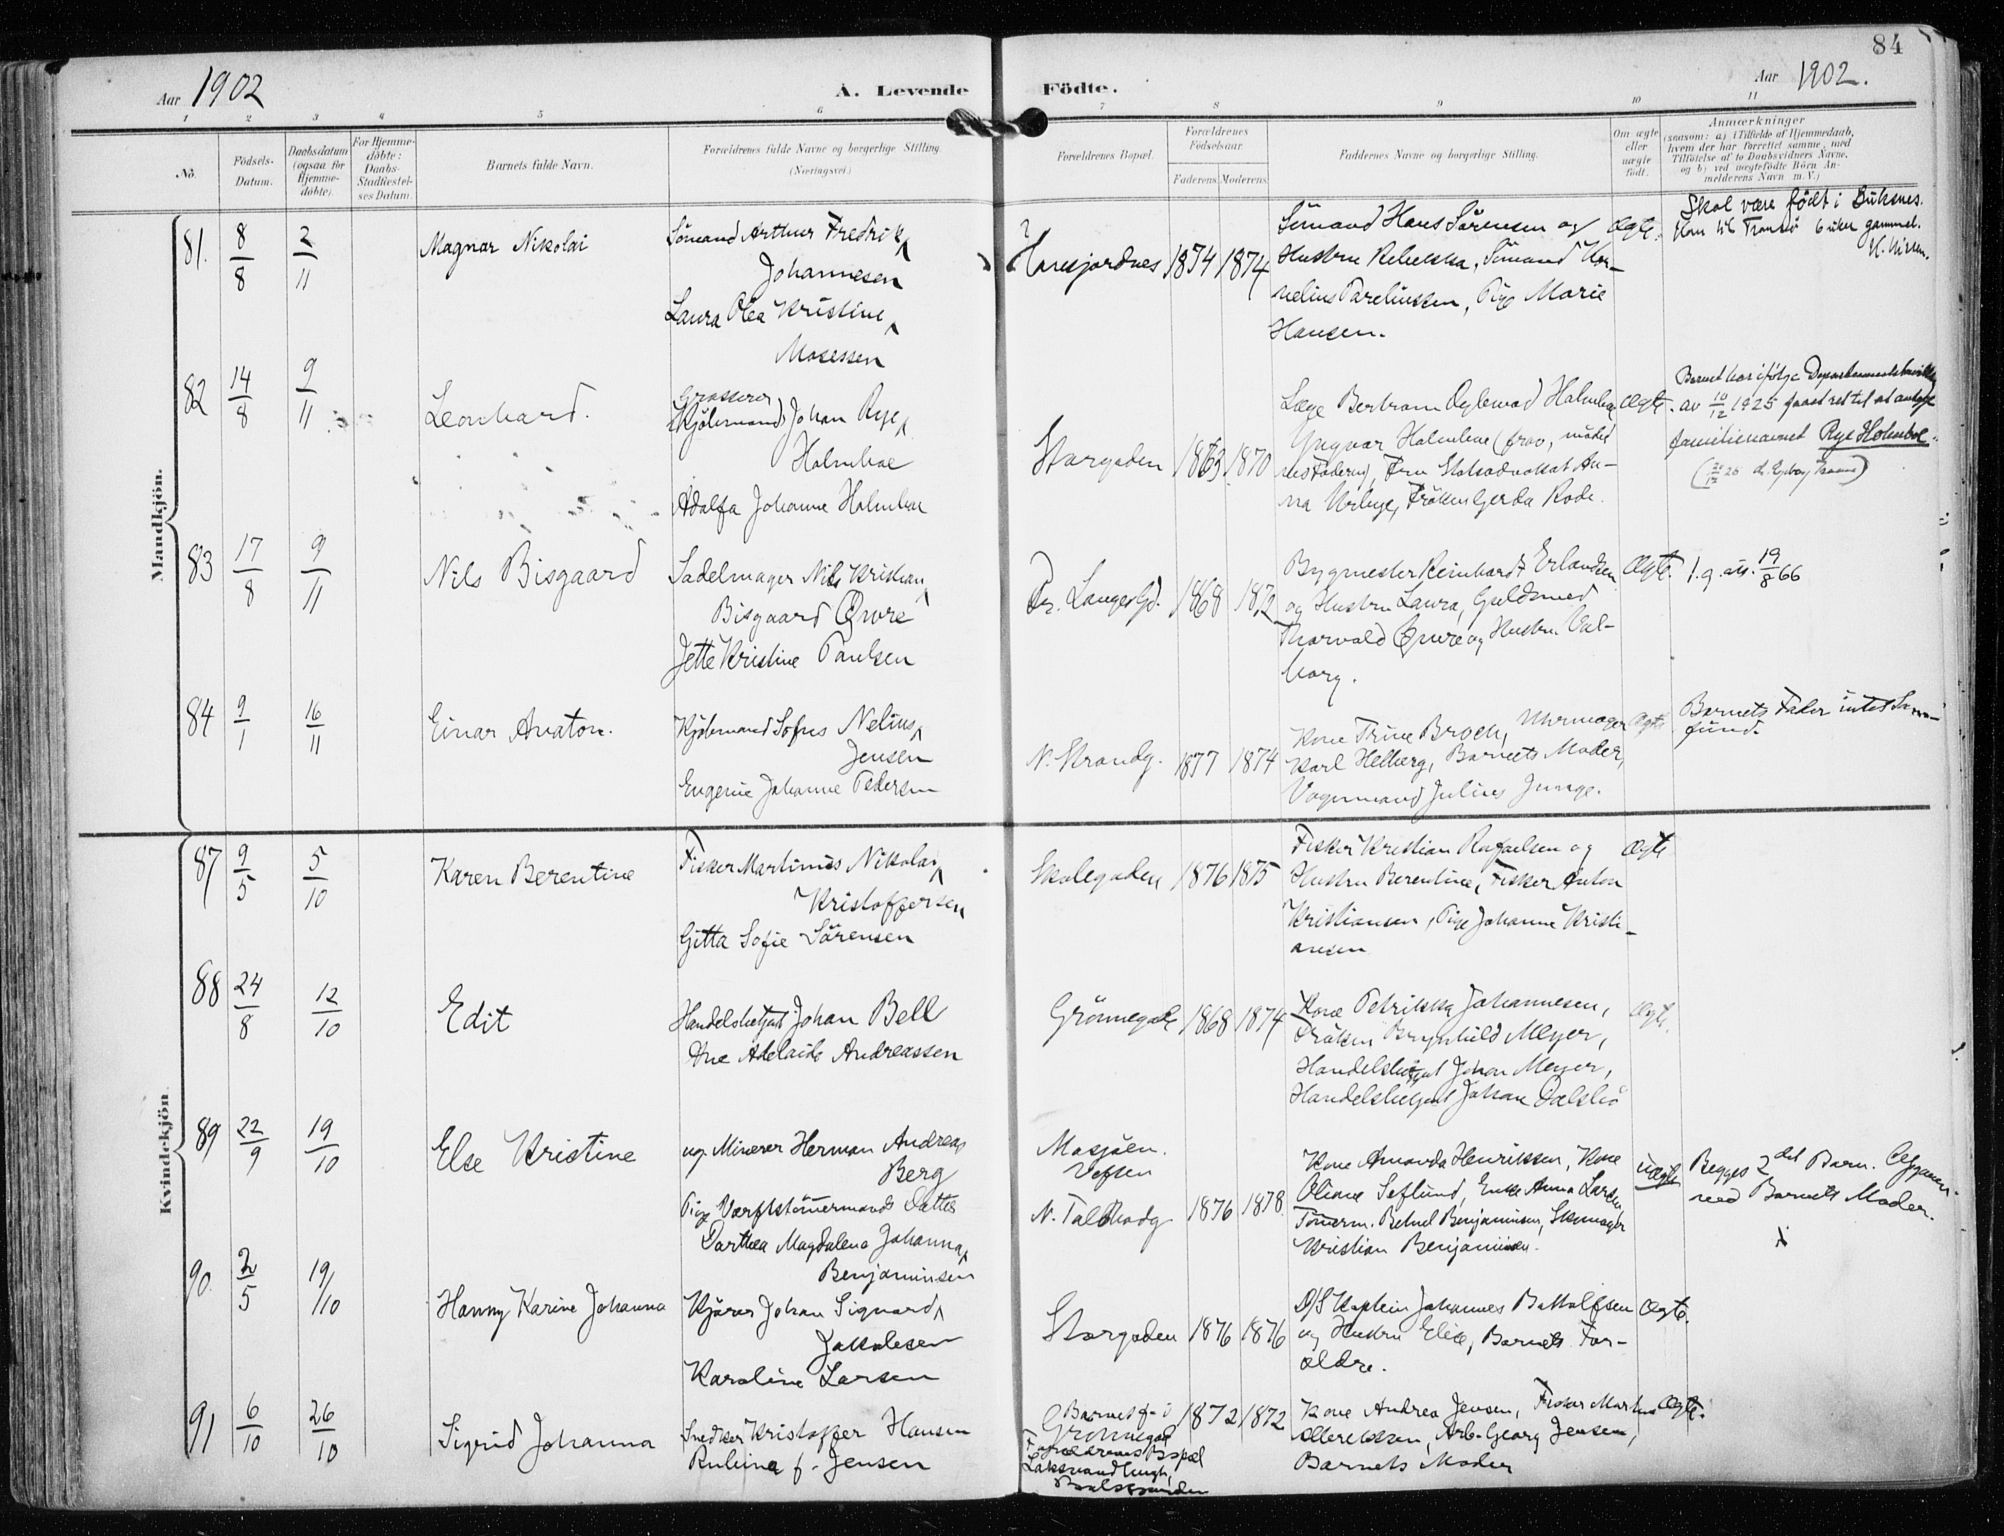 84
Aar 1902
A. Levende Födte.
Aar 1902.
1 2 3 4 5 6 7 8 9 10 11
No.
Födsels-Datum.
Daabsdatum (ogsaa for Hjemme-döbte).
For Hjemme-döbte: Daabs-Stadfæstel-ses Datum.
Barnets fulde Navn.
Forældrenes fulde Navne og borgerlige Stilling.
(Næringsvei.)
Forældrenes Bopæl.
Forældrenes Födselsaar.
Faderens. Moderens.
Faddernes Navne og borgerlige Stilling.
Om ægte eller uægte födt.
Anmærkninger
(saasom: a) i Tilfælde af Hjemmedaab,
hvem der har forrettet samme, med
Tilföielse af to Daabsvidners Navne,
og b) ved uægtefödte Börn An-
melderens Navn m. V.)
Mandkjön.
81. 8/8 2/11
Magnar Nikolai
Sömand Arthur Fredrik
Johannesen
Laura Olea Kristine
Mosessen
1874 1874
Sömand Hans Sörensen og
Hustru Rebekka, Sömand Kor-
nelius Parelinssen, Pige Marie
Hansen.
Ægte.
Skal være födt i Buksnes.
Kom til Tromsö 6 uker gammel.
82 14/8 9/11
Leonhard.
Grosserer
(Kjöbmand) Johan Rye
Holmboe
Adolfa Johanne Holmboe
Storgaden 1863. 1870
Læge Bertram Holmboe
Yngvar Holmboe (frav, mödte
Faderen), Fru Statsadvokat An-
na Fröken Gerda Rode.
Ægte.
Barnet har ifölge
av 10/12 1925 faaet ret til at antage
familienavnet Rye Holmboe.
83 17/8 9/11
Nils Bisgaard
Sadelmager Nils Kristian
Bisgaard Qvire
Jette Kristine Paulsen
Fr. Langes Gd. 1868 1872
Bygmester Reinhardt Erlandsen
og Hustru Laura, Guldsmed
Thorvald Qvire og Hustru Val-
borg.
Ægte.
1.g.att. 19/8 66
84 9/1 16/11
Einar Anaton.
Kjöbmand Sofus Nelius
Jensen
Eugenie Johanne Pedersen
N. Strandg. 1877 1874
Kone Trine Broch, Uhrmager
Karl Helberg, Barnets Moder,
Vognmand Julius Junge.
Ægte
Barnets Fader intet Sam-
fund.
Kvindekjön
87 9/5 5/10
Karen Berentine
Fisker Martinus Nikolai
Kristoffersen
Gitta Sofie Sörensen
Skolegaden 1876 1875
Fisker Kristian Rafaelsen og
Hustru Berentine, Fisker Anton
Kristiansen, Pige Johanne Kristi-
ansen
Ægte
88 24/8 12/10
Edit
Handelsbetjent Johan Bell
Ane Adelaide Andreassen
Grönnegade 1868 1874
Kone Petrikka Johannesen,
Fröken Brynhild Meyer,
Handelsbetjent Johan Meyer,
Handelsbetjent Johan Dalsbö
Ægte.
89 22/9 19/10
Else Kristine
ug. Minerer Herman Andreas
Berg
Pige Værftstömmermands Datter
Dorthea Magdalena Johanna
Benjaminsen
Mosjöen.
Vefsen
N. Toldbodg 1876 1878
Kone Amanda Henriksen, Kone
Oline Seflund, Enke Anna Larsen,
Tömerm. Benjaminsen, Skomager
Kristian Benjaminsen.
uægte
Begges 2det Barn. Opgaven
ved Barnets Moder.
X
90. 2/5 19/10
Hanny Karine Johanna
Kjörer Johan Sigvard
Jakobsen
Karoline Larsen
Storgaden 1876 1876
D/S Kaptein Johannes Bottolfsen
og Hustru Elise, Barnets For-
ældre.
Ægte.
91 6/10 26/10
Sigrid Johanna
Snedker Kristoffer Hansen
Paulina f. Jensen
Barnet f. i
Grönnegad
Forældrenes Bopæl
Balsfjorden
1872 1872
Kone Andrea Jensen, Fisker Martus
Albrektsen, Arb. Georg Jensen,
Barnets Moder
Ægte.